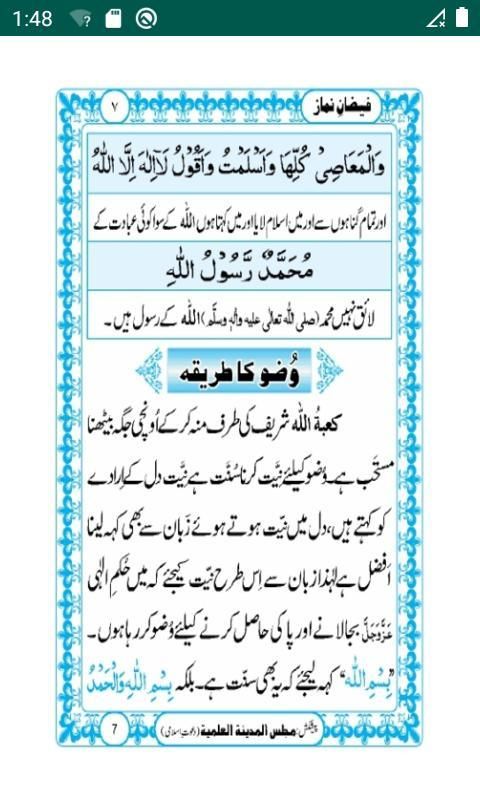 1:48
فیضانِ نماز
۷
وَالْمَعَاصِیْ کُلِّهَا وَاَسْلَمْتُ وَاَقُوْلُ لَآاِلٰهَ اِلَّا اللّٰهُ
اور تمام گناہوں سے اور میں اسلام لایا اور میں کہتا ہوں اللّٰہ کے سوا کوئی عبادت کے
مُحَمَّدٌ رَّسُوْلُ اللّٰهِ
لائق نہیں محمد (صلی اللّٰہ تعالٰی علیہ واٰلہٖ وسلَّم) اللّٰہ کے رسول ہیں۔
وُضو کا طریقہ
کعبۃُ اللّٰہ شریف کی طرف منہ کرکے اُونچی جگہ بیٹھنا
مستحَب ہے۔ وُضو کیلئے نِیَّت کرنا سُنَّت ہے نِیَّت دل کے اِرادے
کو کہتے ہیں، دل میں نیّت ہوتے ہوئے زَبان سے بھی کہہ لینا
اَفضل ہے لہٰذا زبان سے اِس طرح نیّت کیجئے کہ میں حُکمِ الٰہی
عَزَّوَجَلَّ بجا لانے اور پاکی حاصل کرنے کیلئے وُضو کر رہا ہوں۔
”بِسْمِ اللّٰه“ کہہ لیجئے کہ یہ بھی سنّت ہے۔ بلکہ بِسْمِ اللّٰهِ وَالْحَمْدُ
پیشکش: مجلس المدینة العلمیة (دعوتِ اسلامی)
7